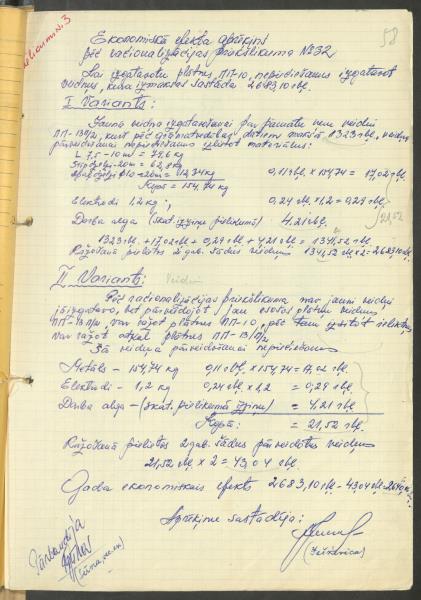 Pielikums N.3
58
Ekonomiskā efekta aprēķins
pēc racionalizācijas priekšlikuma №32
Lai izgatavotu plātnes ПП-10, nepieciešams izgatavot
veidnes, kuru izmaksas sastāda 2683,10 rbļ.
I Variants:
Jauna veidņa izgatavošanai par pamatu ņem veidni
ПП-13/1/2, kura pēc grāmatvedības datiem maksā 1323 rbļ, veidņu
pārveidošanai nepieciešams izlietot materiālus:
L 7,5 - 10 m = 79,6 kg
20 m = 62,8 kg
20 m = 12,34 kg
Kopā = 154,74 kg
0,11 rbļ x 154,74 = 17,02 rbļ
Elektrodi 1,2 kg; 0,24 rbļ x 1,2 = 0,29 rbļ
Darba alga (skat. izziņu pielikumā) 4.21 rbļ.
21,52
1323 rbļ + 17,02 rbļ + 0,29 rbļ + 4,21 rbļ = 1341,52 rbļ
Ražošanā pielietos 2 gab. šādus veidņus 1341,52 rbļ x 2 = 2683,10 rbļ
II Variants: Veidņi
Pēc racionalizācijas priekšlikuma nav jauni veidņi
jāizgatavo, bet pārveidojot jau esošos plātņu veidņus
ПП-13/1/2, var ražot plātnes ПП-10, pēc tam izņemot ieliktņus
var ražot atkal plātnes ПП-13/1/2
Šā veidņa pārveidošanai nepieciešams
Metāls - 154,74 kg 0,11 rbļ x 154,74 = 17,02 rbļ
Elektrodi - 1,2 kg 0,24 rbļ x 1,2 = 0,29 rbļ
Darba alga - (skat. pielikumā izziņu) = 4,21 rbļ
Kopā: = 21,52 rbļ
Ražošanā pielietos 2 gab. šādus pārveidotus veidņus
21,52 rbļ x 2 = 43,04 rbļ
Gada ekonomiskais efekts 2683,10 rbļ - 43,04 rbļ =
Aprēķinu sastādīja:
Pārbaudīja